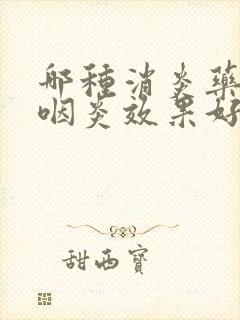 那種消炎藥
咽炎效果好
甜西寶